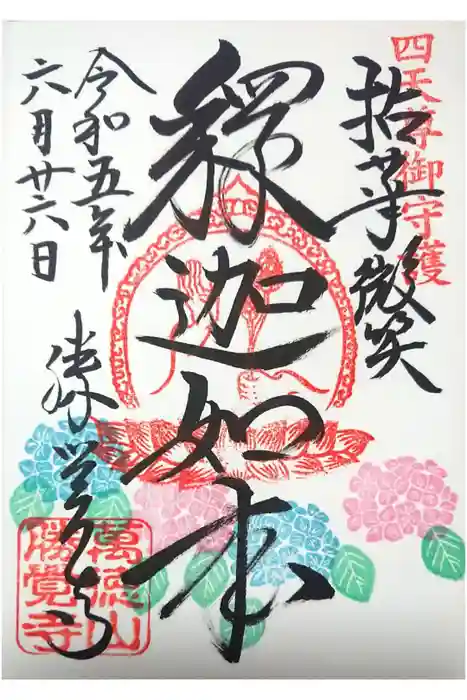 四天尊御守護
拈華微笑
釋迦如来
令和五年
六月廿六日
勝覚寺
萬徳山
勝覺寺